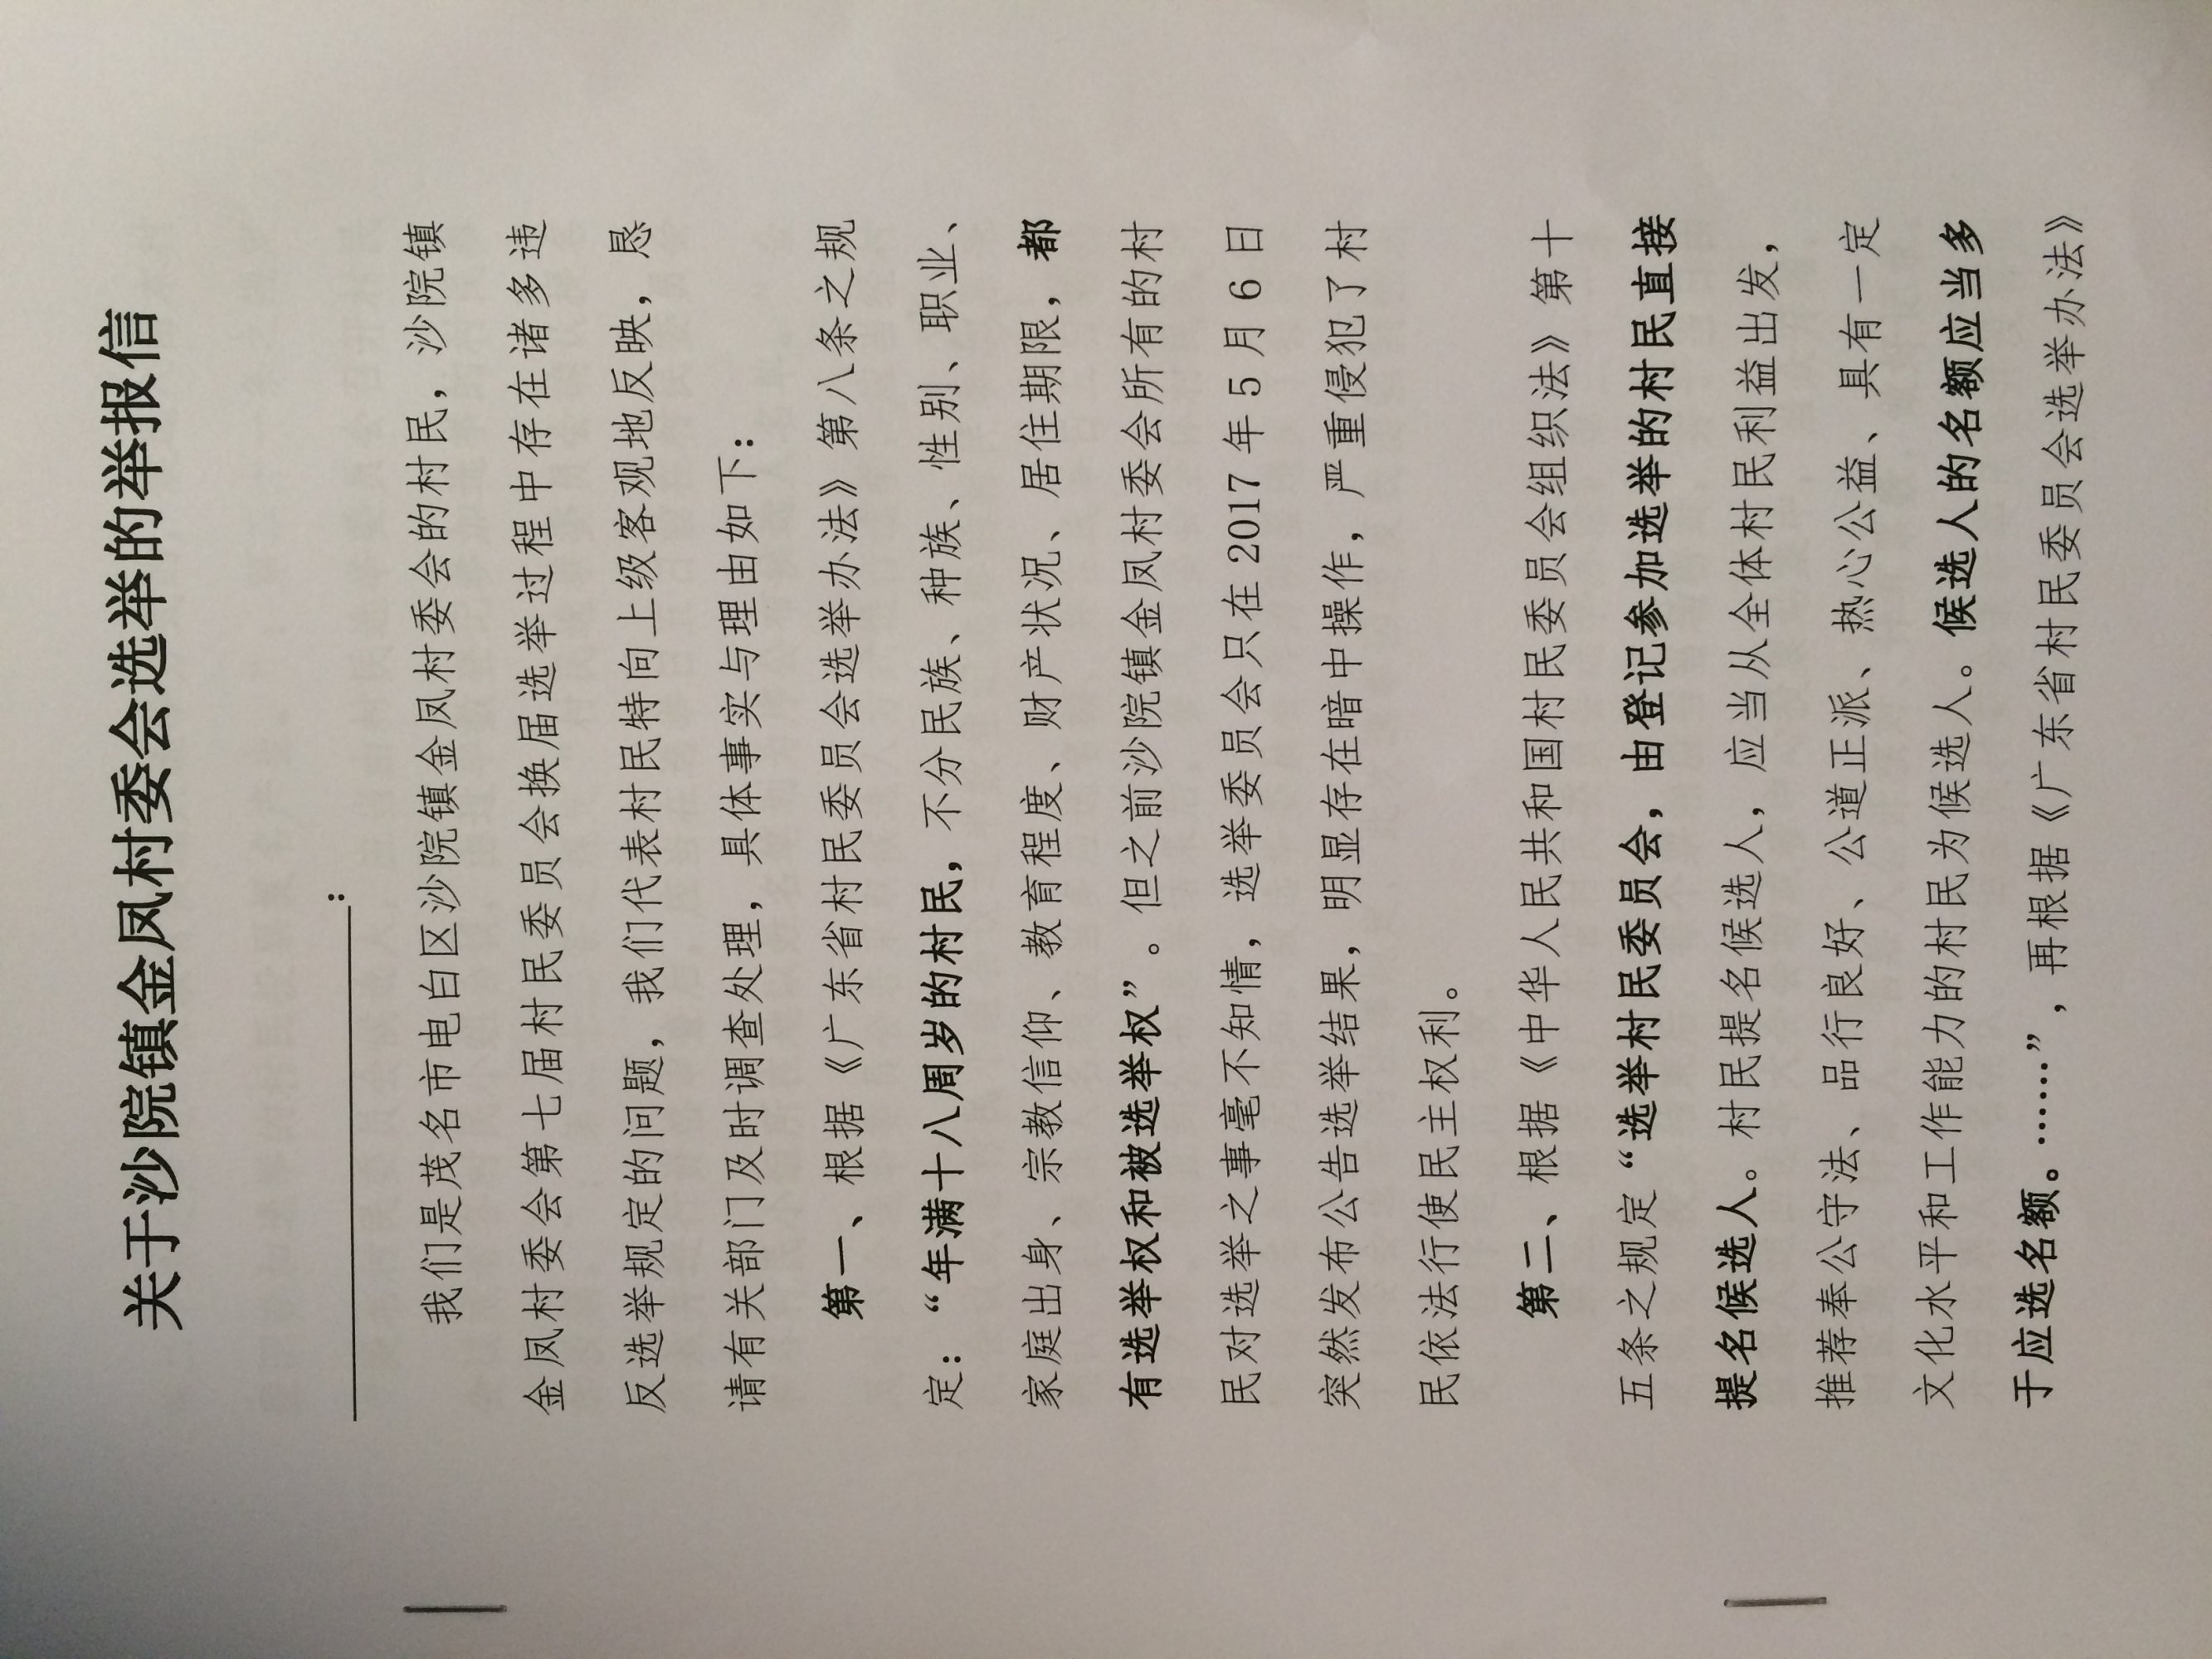 关于沙院镇金凤村委会选举的举报信
：
我们是茂名市电白区沙院镇金凤村委会的村民，沙院镇
金凤村委会第七届村民委员会换届选举过程中存在诸多违
反选举规定的问题，我们代表村民特向上级客观地反映，恳
请有关部门及时调查处理，具体事实与理由如下：
第一、根据《广东省村民委员会选举办法》第八条之规
定：“年满十八周岁的村民，不分民族、种族、性别、职业、
家庭出身、宗教信仰、教育程度、财产状况、居住期限，都
有选举权和被选举权”。但之前沙院镇金凤村委会所有的村
民对选举之事毫不知情，选举委员会只在 2017 年 5 月 6 日
突然发布公告选举结果，明显存在暗中操作，严重侵犯了村
民依法行使民主权利。
第二、根据《中华人民共和国村民委员会组织法》第十
五条之规定“选举村民委员会，由登记参加选举的村民直接
提名候选人。村民提名候选人，应当从全体村民利益出发，
推荐奉公守法、品行良好、公道正派、热心公益、具有一定
文化水平和工作能力的村民为候选人。候选人的名额应当多
于应选名额。……”，再根据《广东省村民委员会选举办法》